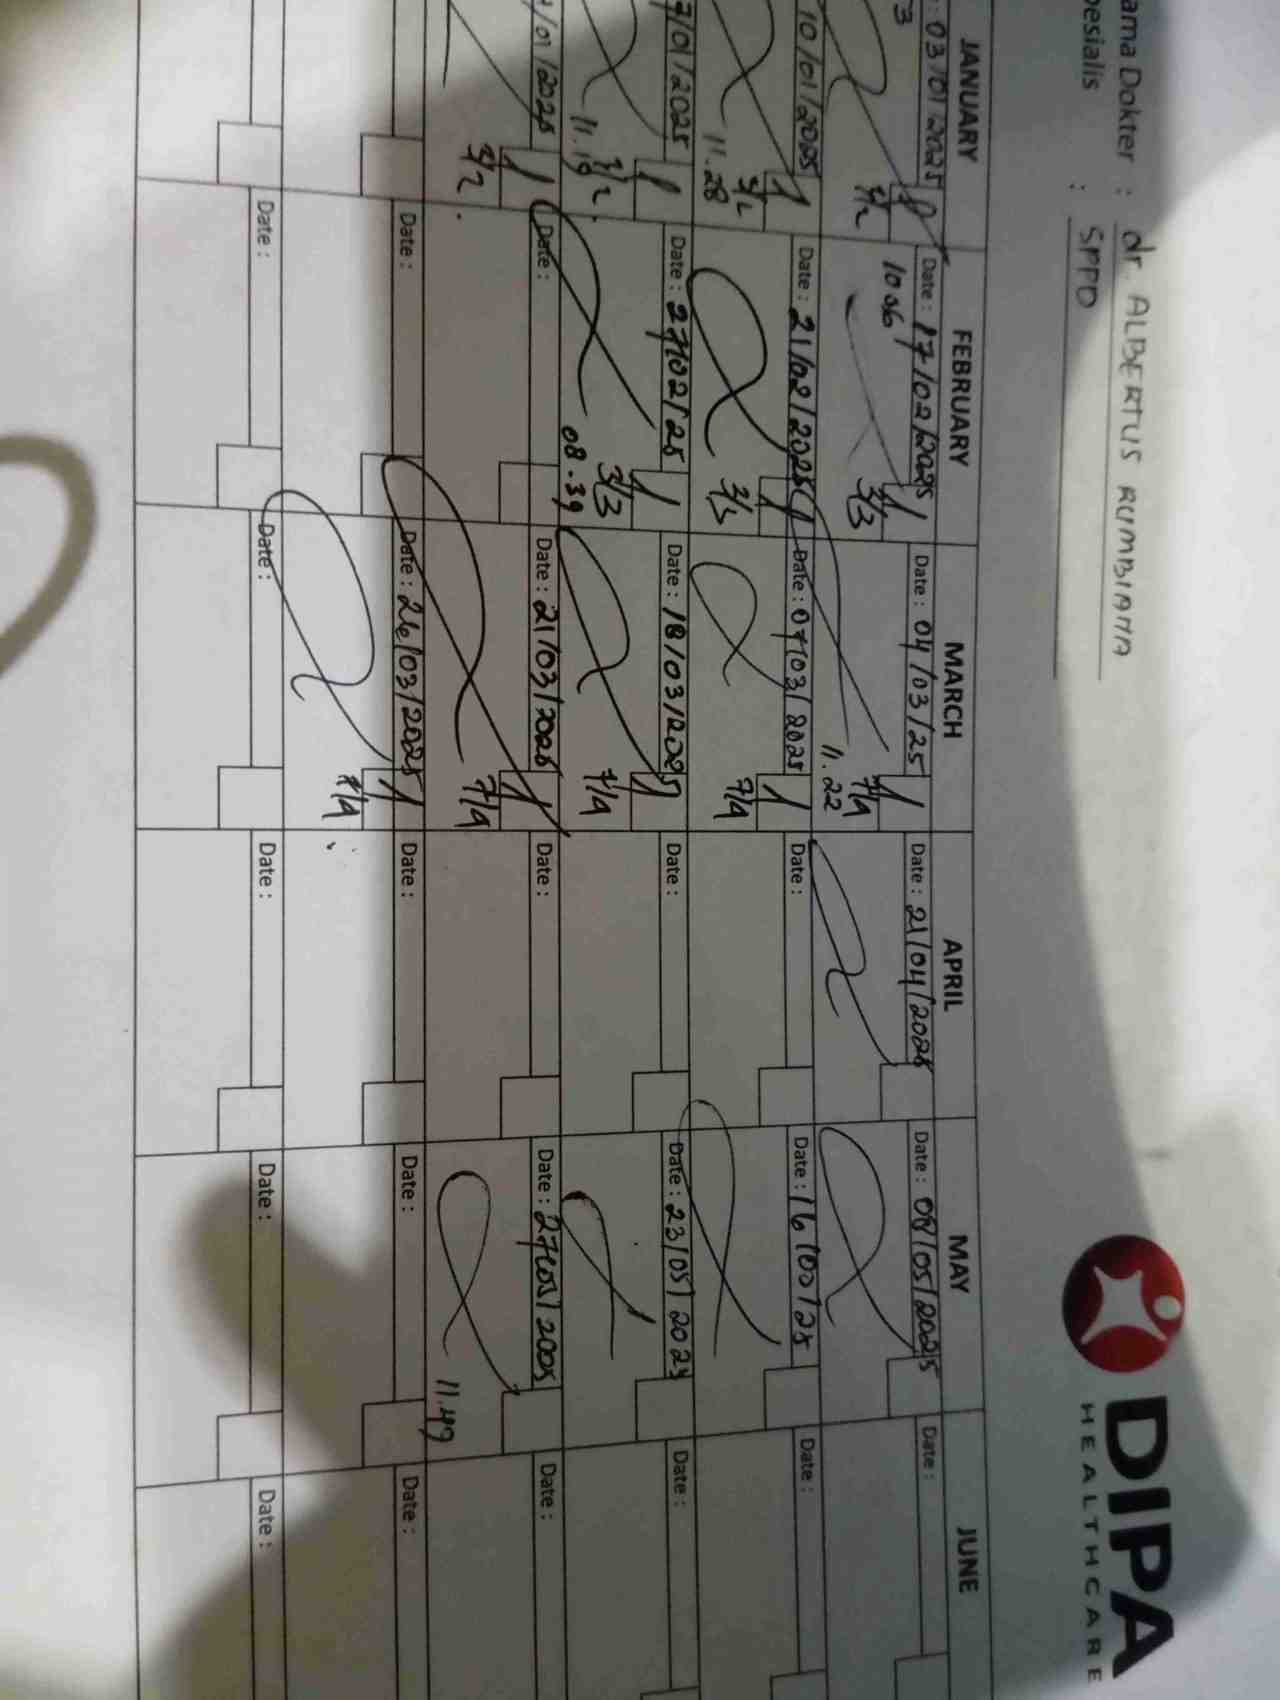 ama Dokter : dr. ALBERTUS RUMBIANA
pesialis : SPPD
DIPA
HEALTHCARE
JANUARY FEBRUARY MARCH APRIL MAY JUNE
: 03/01/2025 Date : 17/02/2025 Date : 04/03/25 Date : 21/04/2025 Date : 08/05/2025 Date :
3 3/2 1006 3/3 11.22 7/4
10/01/2025 Date : 21/02/2025 Date : 07/03/2025 Date : Date : 16/05/25 Date :
11.28 3/2 3/3 7/4
7/01/2025 Date : 27/02/25 Date : 18/03/2025 Date : Date : 23/05/2025 Date :
11.19 3/2 08.39 3/3 7/4
/01/2025 Date : Date : 21/03/2025 Date : Date : 27/05/2005 Date :
3/2 7/4 11.49
Date : Date : 26/03/2025 Date : Date : Date :
7/4
Date : Date : Date : Date : Date :